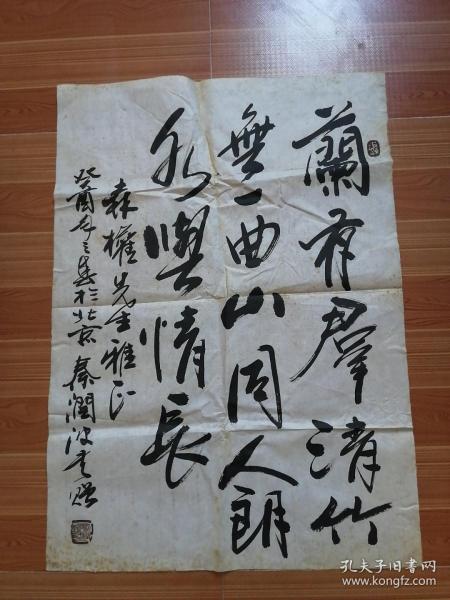 蘭有羣清竹
無一曲山同人朗
水與情長
森權先生雅正
癸酉年之春於北京秦潤波書贈
孔夫子旧书网
www.kongfz.com